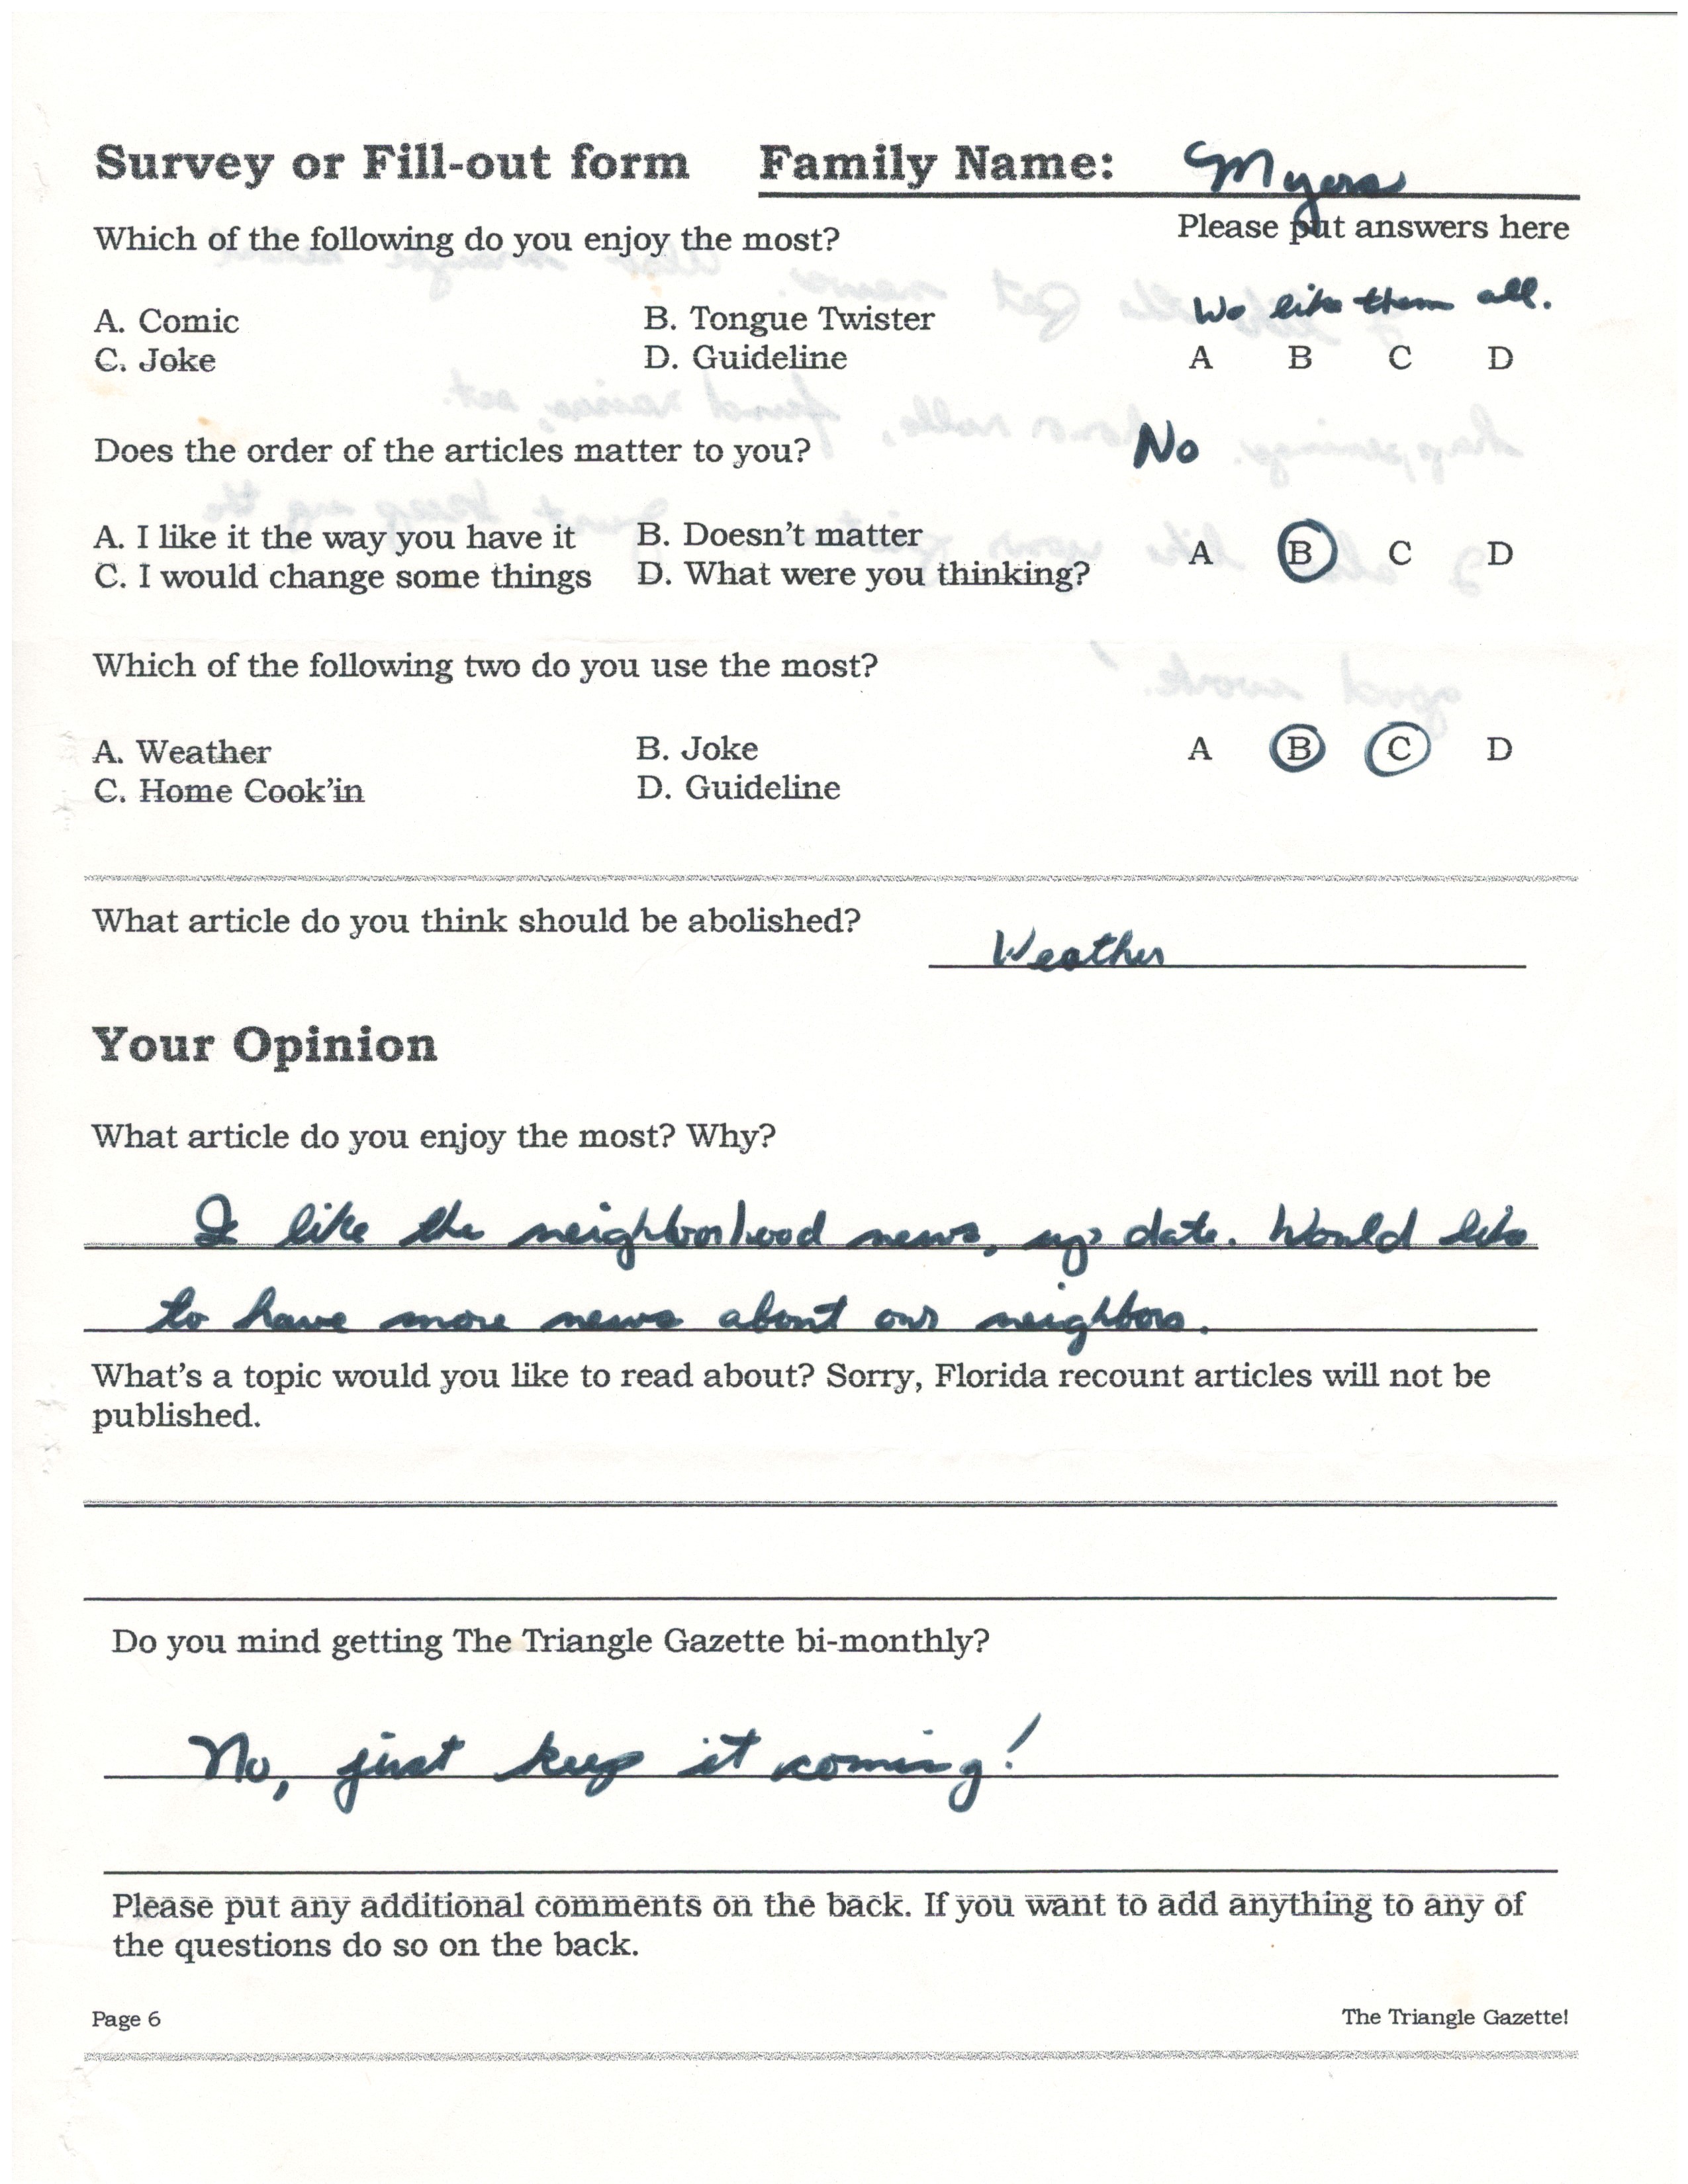 Survey or Fill-out form Family Name: Myers
Which of the following do you enjoy the most? Please put answers here
We like them all.
A. Comic B. Tongue Twister
C. Joke D. Guideline A B C D
Does the order of the articles matter to you? No
A. I like it the way you have it B. Doesn't matter A B C D
C. I would change some things D. What were you thinking?
Which of the following two do you use the most?
A. Weather B. Joke A B C D
C. Home Cook'in D. Guideline
What article do you think should be abolished? Weather
Your Opinion
What article do you enjoy the most? Why?
I like the neighborhood news, up date. Would like
to have more news about our neighbors.
What's a topic would you like to read about? Sorry, Florida recount articles will not be
published.
Do you mind getting The Triangle Gazette bi-monthly?
No, just keep it coming!
Please put any additional comments on the back. If you want to add anything to any of
the questions do so on the back.
Page 6 The Triangle Gazette!